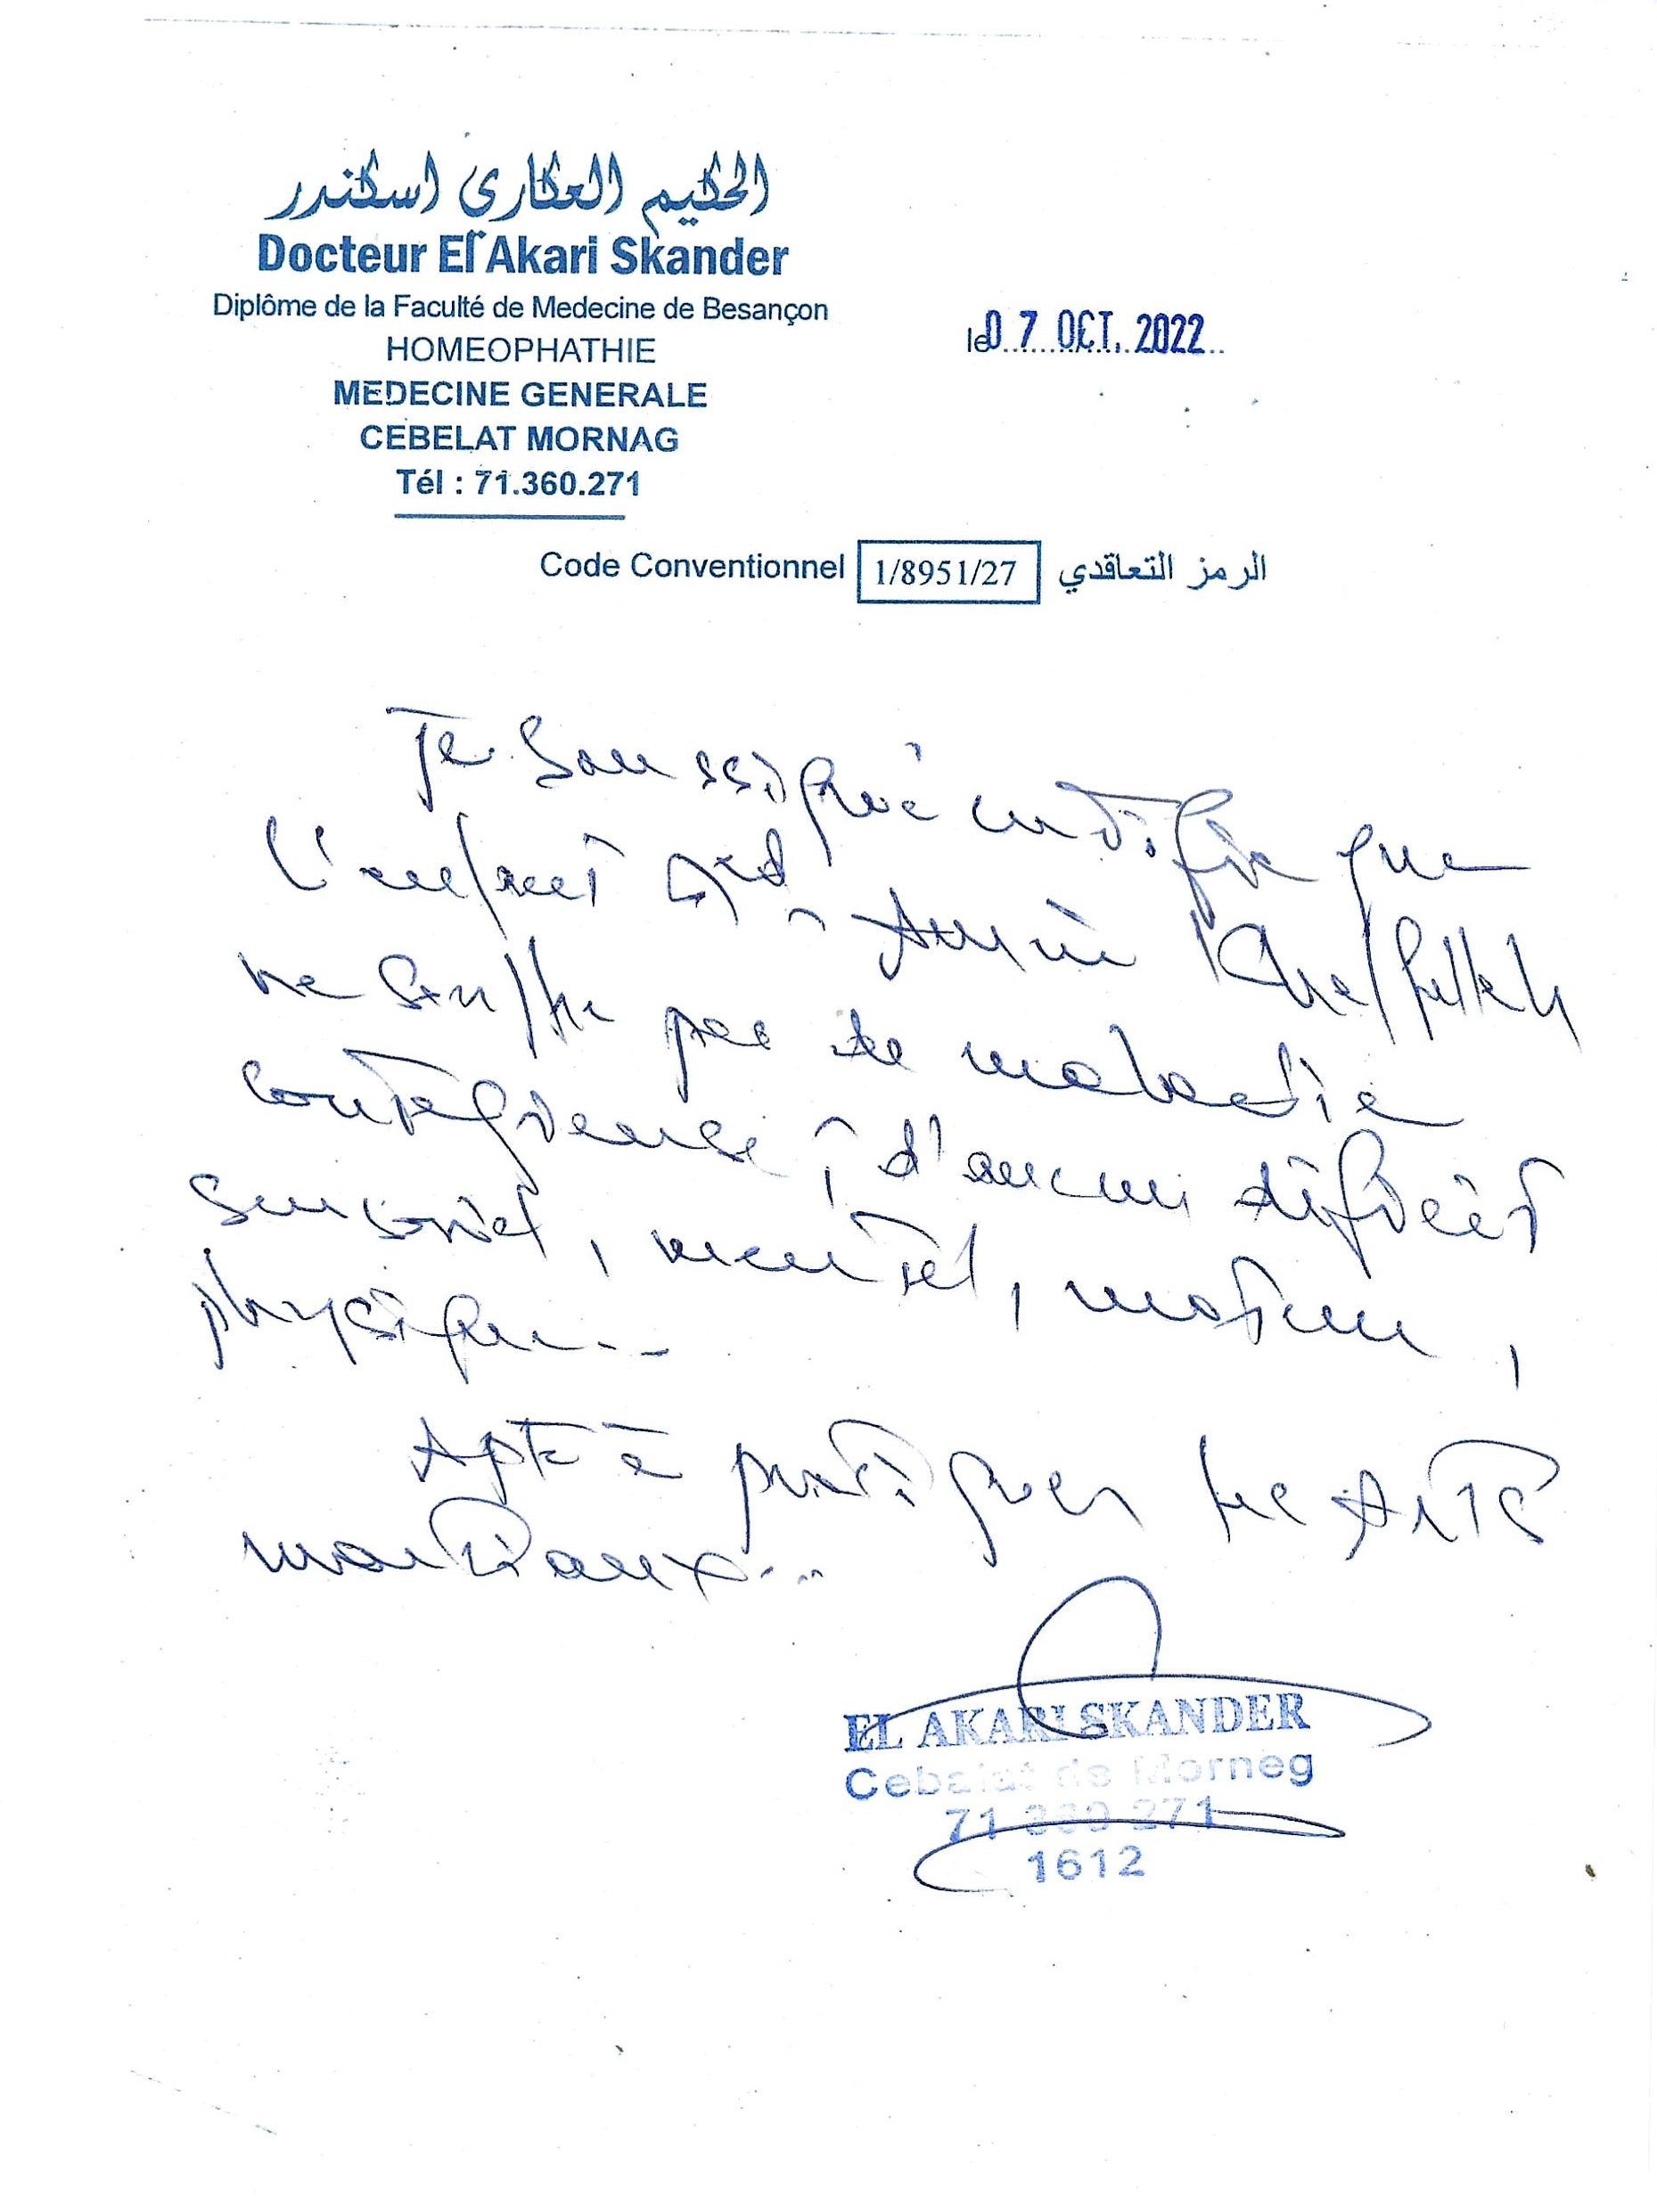 الحكيم العكاري اسكندر
Docteur El Akari Skander
Diplôme de la Faculté de Medecine de Besançon
HOMEOPHATHIE
MEDECINE GENERALE
CEBELAT MORNAG
Tél : 71.360.271
le 07 OCT. 2022
Code Conventionnel 1/8951/27 الرمز التعاقدي
Je soussigné certifie que
l'enfant Med Amine
ne souffre pas de maladie
contagieuse, d'aucun déficit
sensoriel, mental, moteur,
physique...
Apte à pratiquer les Arts
martiaux...
EL AKARI SKANDER
Cebalat de Morneg
71 360 271
1612